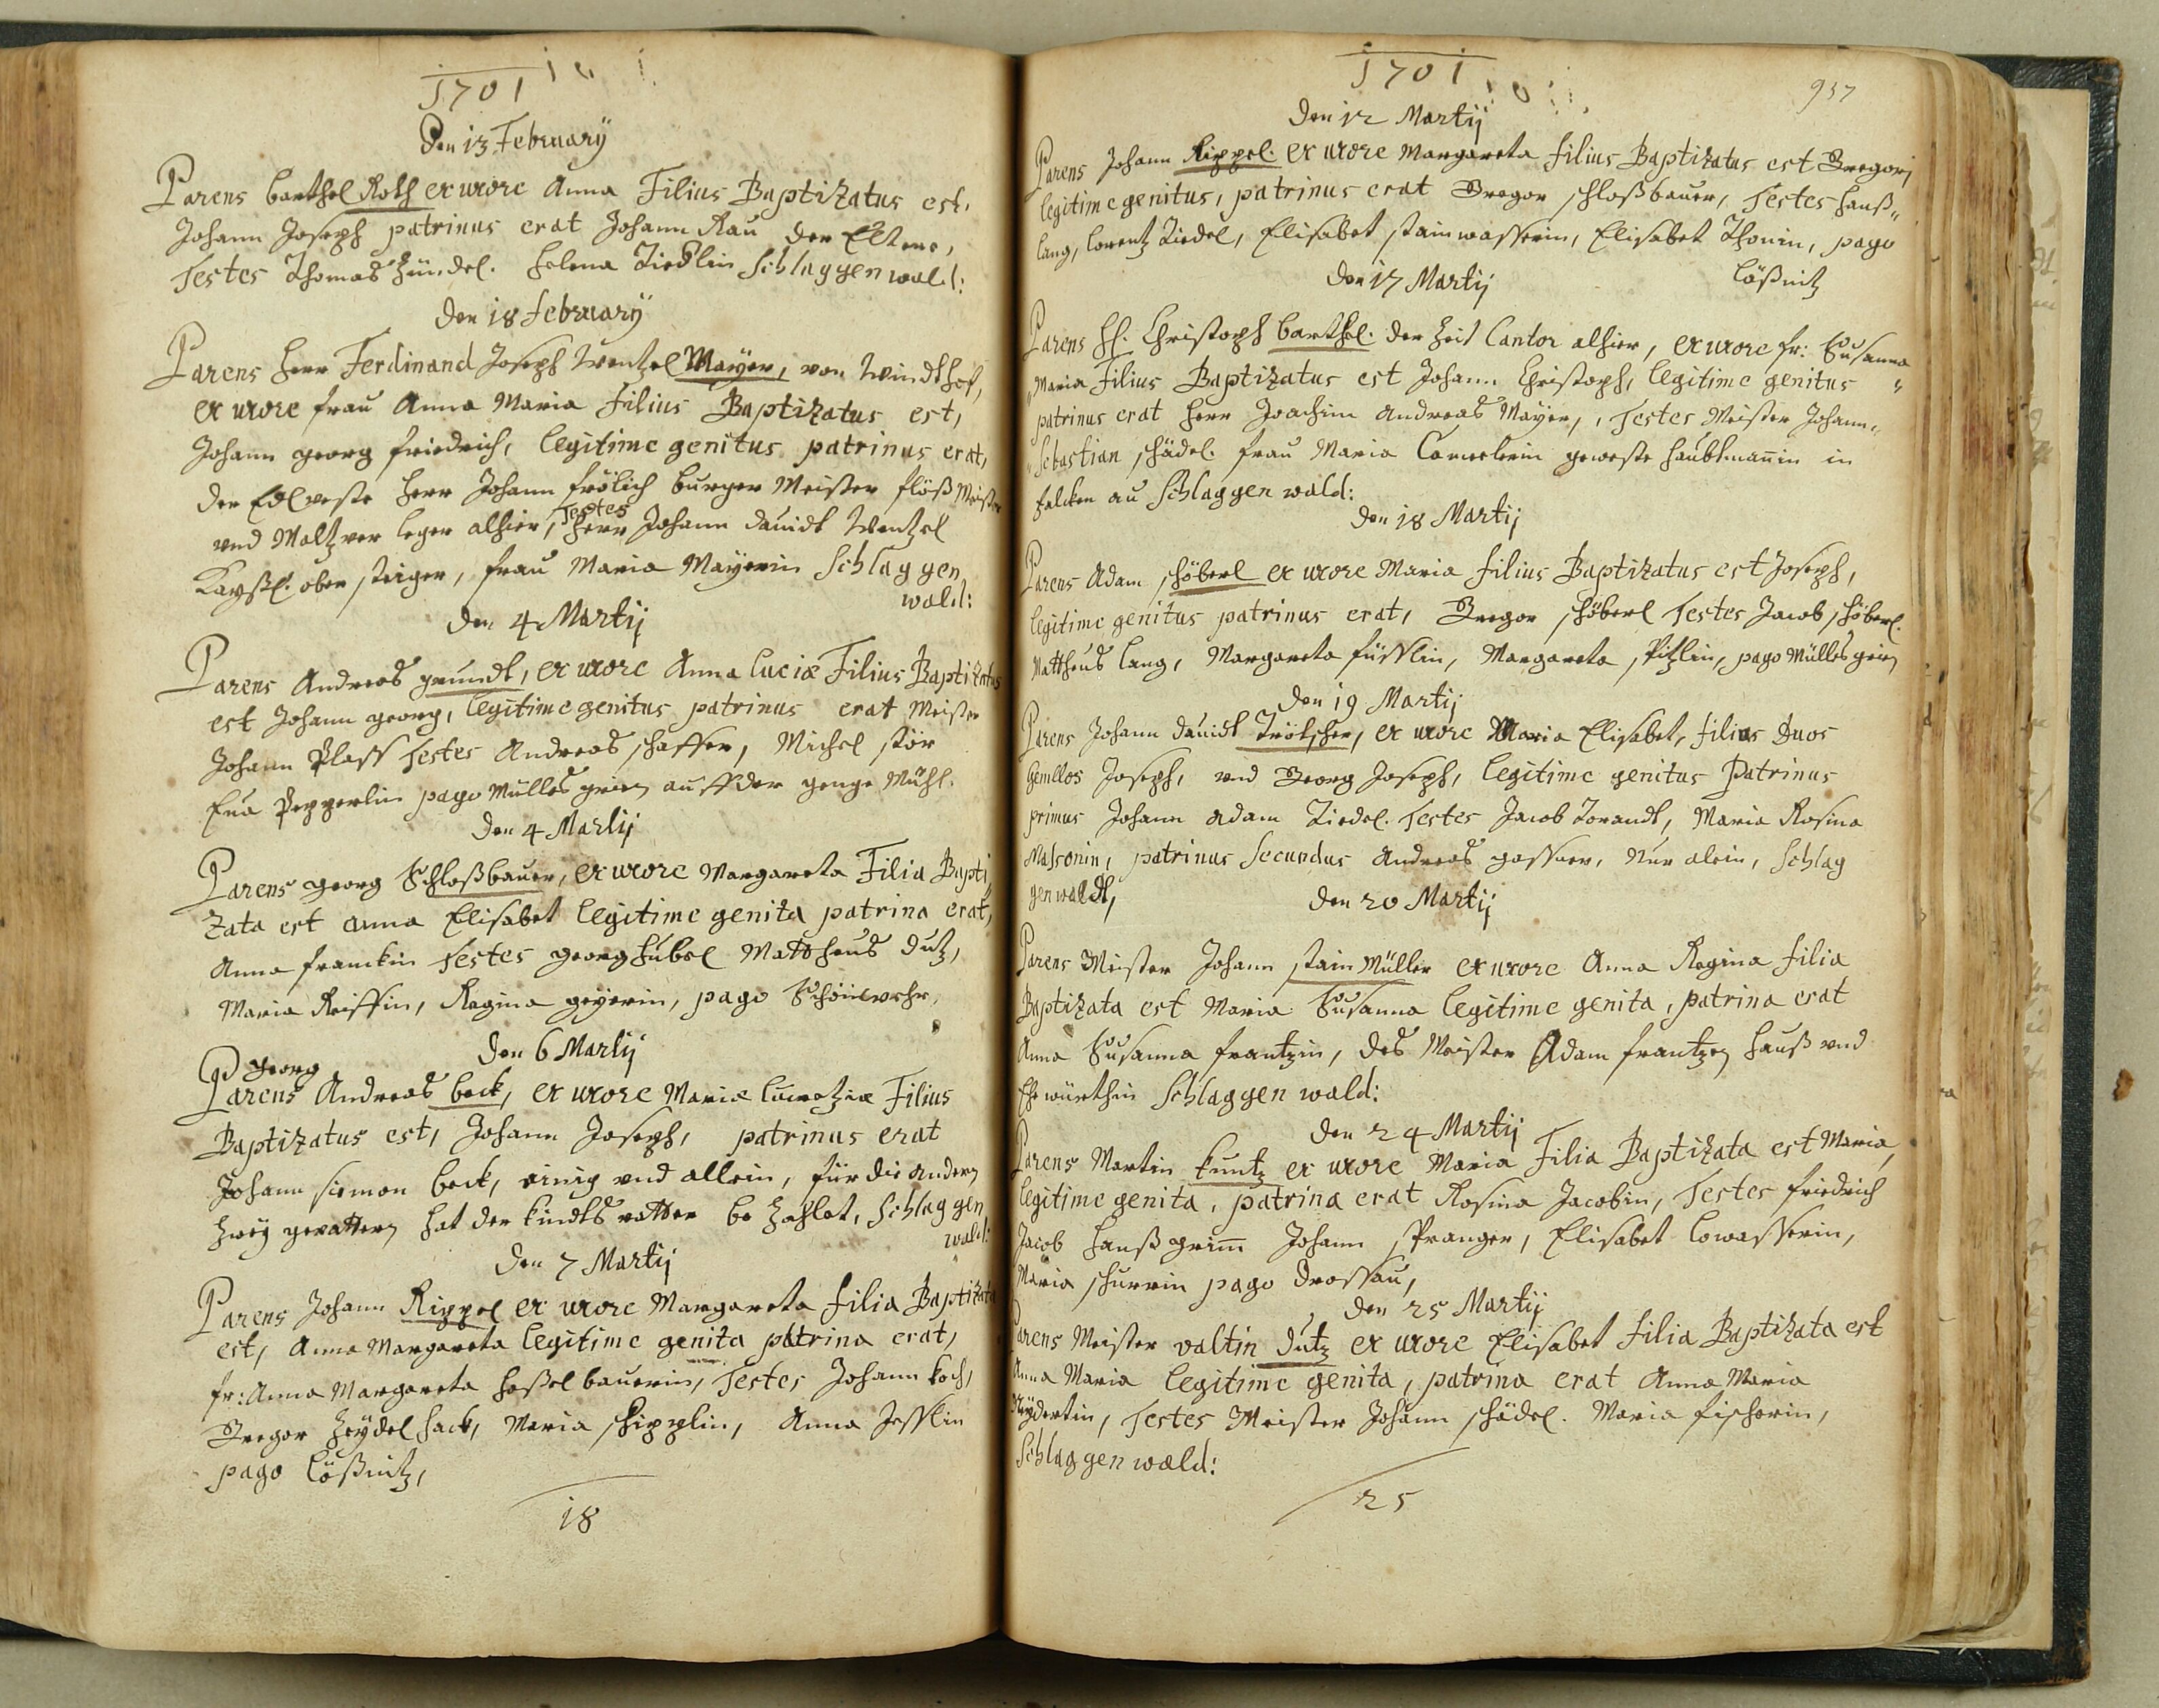 1701
Den 13 February
Parens barthel Roth ex uxore Anna Filius Baptizatus est,
Johann Joseph patrinus erat Johann Rau der Eltere,
Testes Thomas Zündel. Helena Tiedlin Schlaggenwald:
Den 18 february
Parens Herr Ferdinand Joseph Wentzel Mayer, von Windthof,
ex uxore frau Anna Maria filius Baptizatus est,
Johann georg friedrich, legitime genitus patrinus erat,
der Edlveste Herr Johann frölich burger Meister flöß Meister
Testes
vnd Maltz ver leger alhier, Herr Johann dauidt Wentzel
Kayßl. ober steiger, frau Maria Mayerin Schlaggen
wald:
den 4 Martij
Parens Andreas grundt, ex uxore Anna Luciæ Filius Baptizatus
est Johann georg, legitime genitus patrinus erat Meister
Johann Plass Testes Andreas schaffer, Michel stör
Eua Pepperlin pago Mülles grün auff der genge Mühl.
den 4 Martij
Parens georg Schloßbauer, ex uxore Margareta Filia Bapti
zata est Anna Elisabet legitime genita patrina erat,
Anna franckin Testes georg hübel Mattheus dutz,
Maria Reissin, Regina geyerin, pago Schönwehr,
den 6 Martij
georg
Parens Andreas beck, ex uxore Mariæ lucretziæ Filius
Baptizatus est, Johann Joseph, patrinus erat
Johann siemon beck, einig vnd allein, für die andern
zweÿ gevattern hat der kindts vatter be zahlet, Schlaggen
wald:
den 7 Martij
Parens Johann Rippel ex uxore Margareta filia Baptizata
est, Anna Margareta legitime genita patrina erat,
fr: Anna Margareta haßelbauerin, Testes Johann koch,
Gregor Heÿdelhack, Maria schipplin, Anna Jesslin
pago Lößnitz,
18
1701
957
den 12 Martij
Parens Johann Rippel ex uxore Margareta filius Baptizatus est Gregorj
legitime genitus, patrinus erat Gregor schloßbauer, Testes hanß
lang, lorentz Tiedel, Elisabet stainwasserin, Elisabet Thonin, pago
Lößnitz
den 17 Martij
Parens H. Christoph barthel der Zeit Cantor alhier, ex uxore fr: Susanna
Maria Filius Baptizatus est Johann Christoph, legitime genitus
patrinus erat Herr Joachim Andreas Mayer, Testes Meister Johann
Sebastian schädel. frau Maria geweste haubtmanin in
falcken au Schlaggenwald:
den 18 Martij
Parens Adam schöberl ex uxore Maria filius Baptizatus est Joseph,
legitime genitus patrinus erat, Gregor schöberl Testes Jacob schöberl.
Mattheus lang, Margareta füsslin, Margareta spitzlin, pago Mülles grün
den 19 Martij
Parens Johann dauidt Trötscher, ex uxore Maria Elisabet, filius duos
gemllos Joseph, vnd Georg Joseph, legitime genitus Patrinus
primus Johann adam Tiedel. Testes Jacob Torandt, Maria Rosina
Massonin, patrinus secundus Andreas gassner, nur alein, Schlag
genwaldt,
den 20 Martij
Parens Meister Johann stain Müller ex uxore Anna Regina filia
Baptizata est Maria Susanna legitime genita, patrina erat
Anna Susanna frantzin, des Meister Adam frantzen hauß vnd
Ehe würthin Schlaggenwald:
den 24 Martij
Parens Martin kuntz ex uxore Maria Filia Baptizata est Maria,
legitime genita, patrina erat Rosina Jacobin, Testes friedrich
Jacob hanß grim̄ Johann Pranger, Elisabet lowasserin,
Maria schurrin pago drossau,
den 25 Martij
Parens Meister valtin dutz ex uxore Elisabet filia Baptizata est
Anna Maria legitime genita, patrina erat Anna Maria
Testes Meister Johann schädel. Maria fischerin,
Schlaggenwald:
25